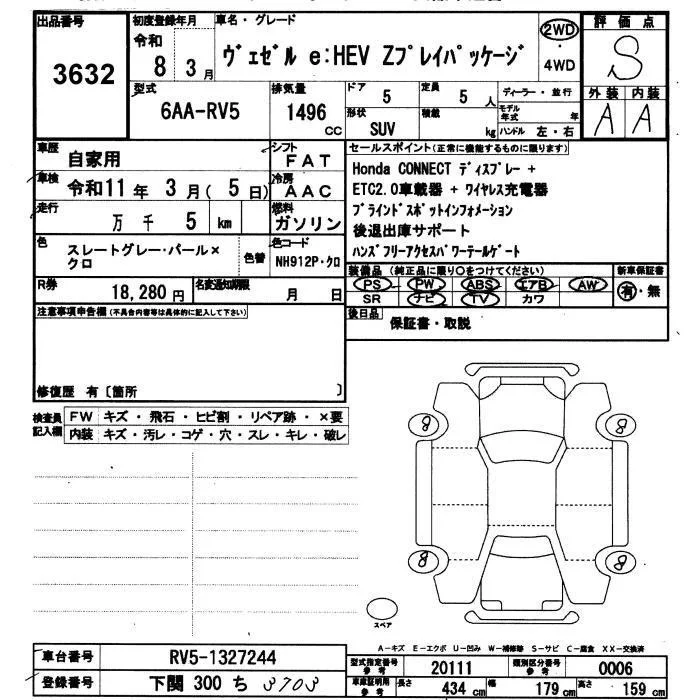 出品番号
3632
初度登録年月
令和
8 3月
車名・グレード
ヴェゼル e:HEV Zプレイパッケージ
2WD
・
4WD
評価点
S
外装 内装
A A
型式
6AA-RV5
排気量
1496
CC
ドア
5
定員
5 人
ディーラー・並行
形状
SUV
積載
kg
モデル年式 年
ハンドル 左・右
車歴
自家用
シフト
FAT
車検
令和11年 3月( 5日)
冷房
AAC
走行
万 千 5 km
燃料
ガソリン
色
スレートグレー・パール×
クロ
色替
色コード
NH912P・クロ
R券
18,280 円
名変通知期限
月 日
セールスポイント(正常に機能するものに限ります)
Honda CONNECT ディスプレー +
ETC2.0車載器 + ワイヤレス充電器
ブラインドスポットインフォメーション
後退出庫サポート
ハンズフリーアクセスパワーテールゲート
装備品(純正品に限り○をつけてください)
新車保証書
PS PW ABS エアB AW
SR ナビ TV カワ
有・無
後日品
保証書・取説
注意事項申告欄(不具合内容等は具体的に記入して下さい)
修復歴 有〔箇所 〕
検査員
記入欄
FW キズ・飛石・ヒビ割・リペア跡・×要
内装 キズ・汚レ・コゲ・穴・スレ・キレ・破レ
8 8
8 8
スペア
A-キズ E-エクボ U-凹み W-補修跡 S-サビ C-腐食 XX-交換済
車台番号
RV5-1327244
登録番号
下関 300 ち 3703
型式指定番号
参考
20111
類別区分番号
参考
0006
車庫証明用
参考
長さ
434 cm
幅
179 cm
高さ
159 cm